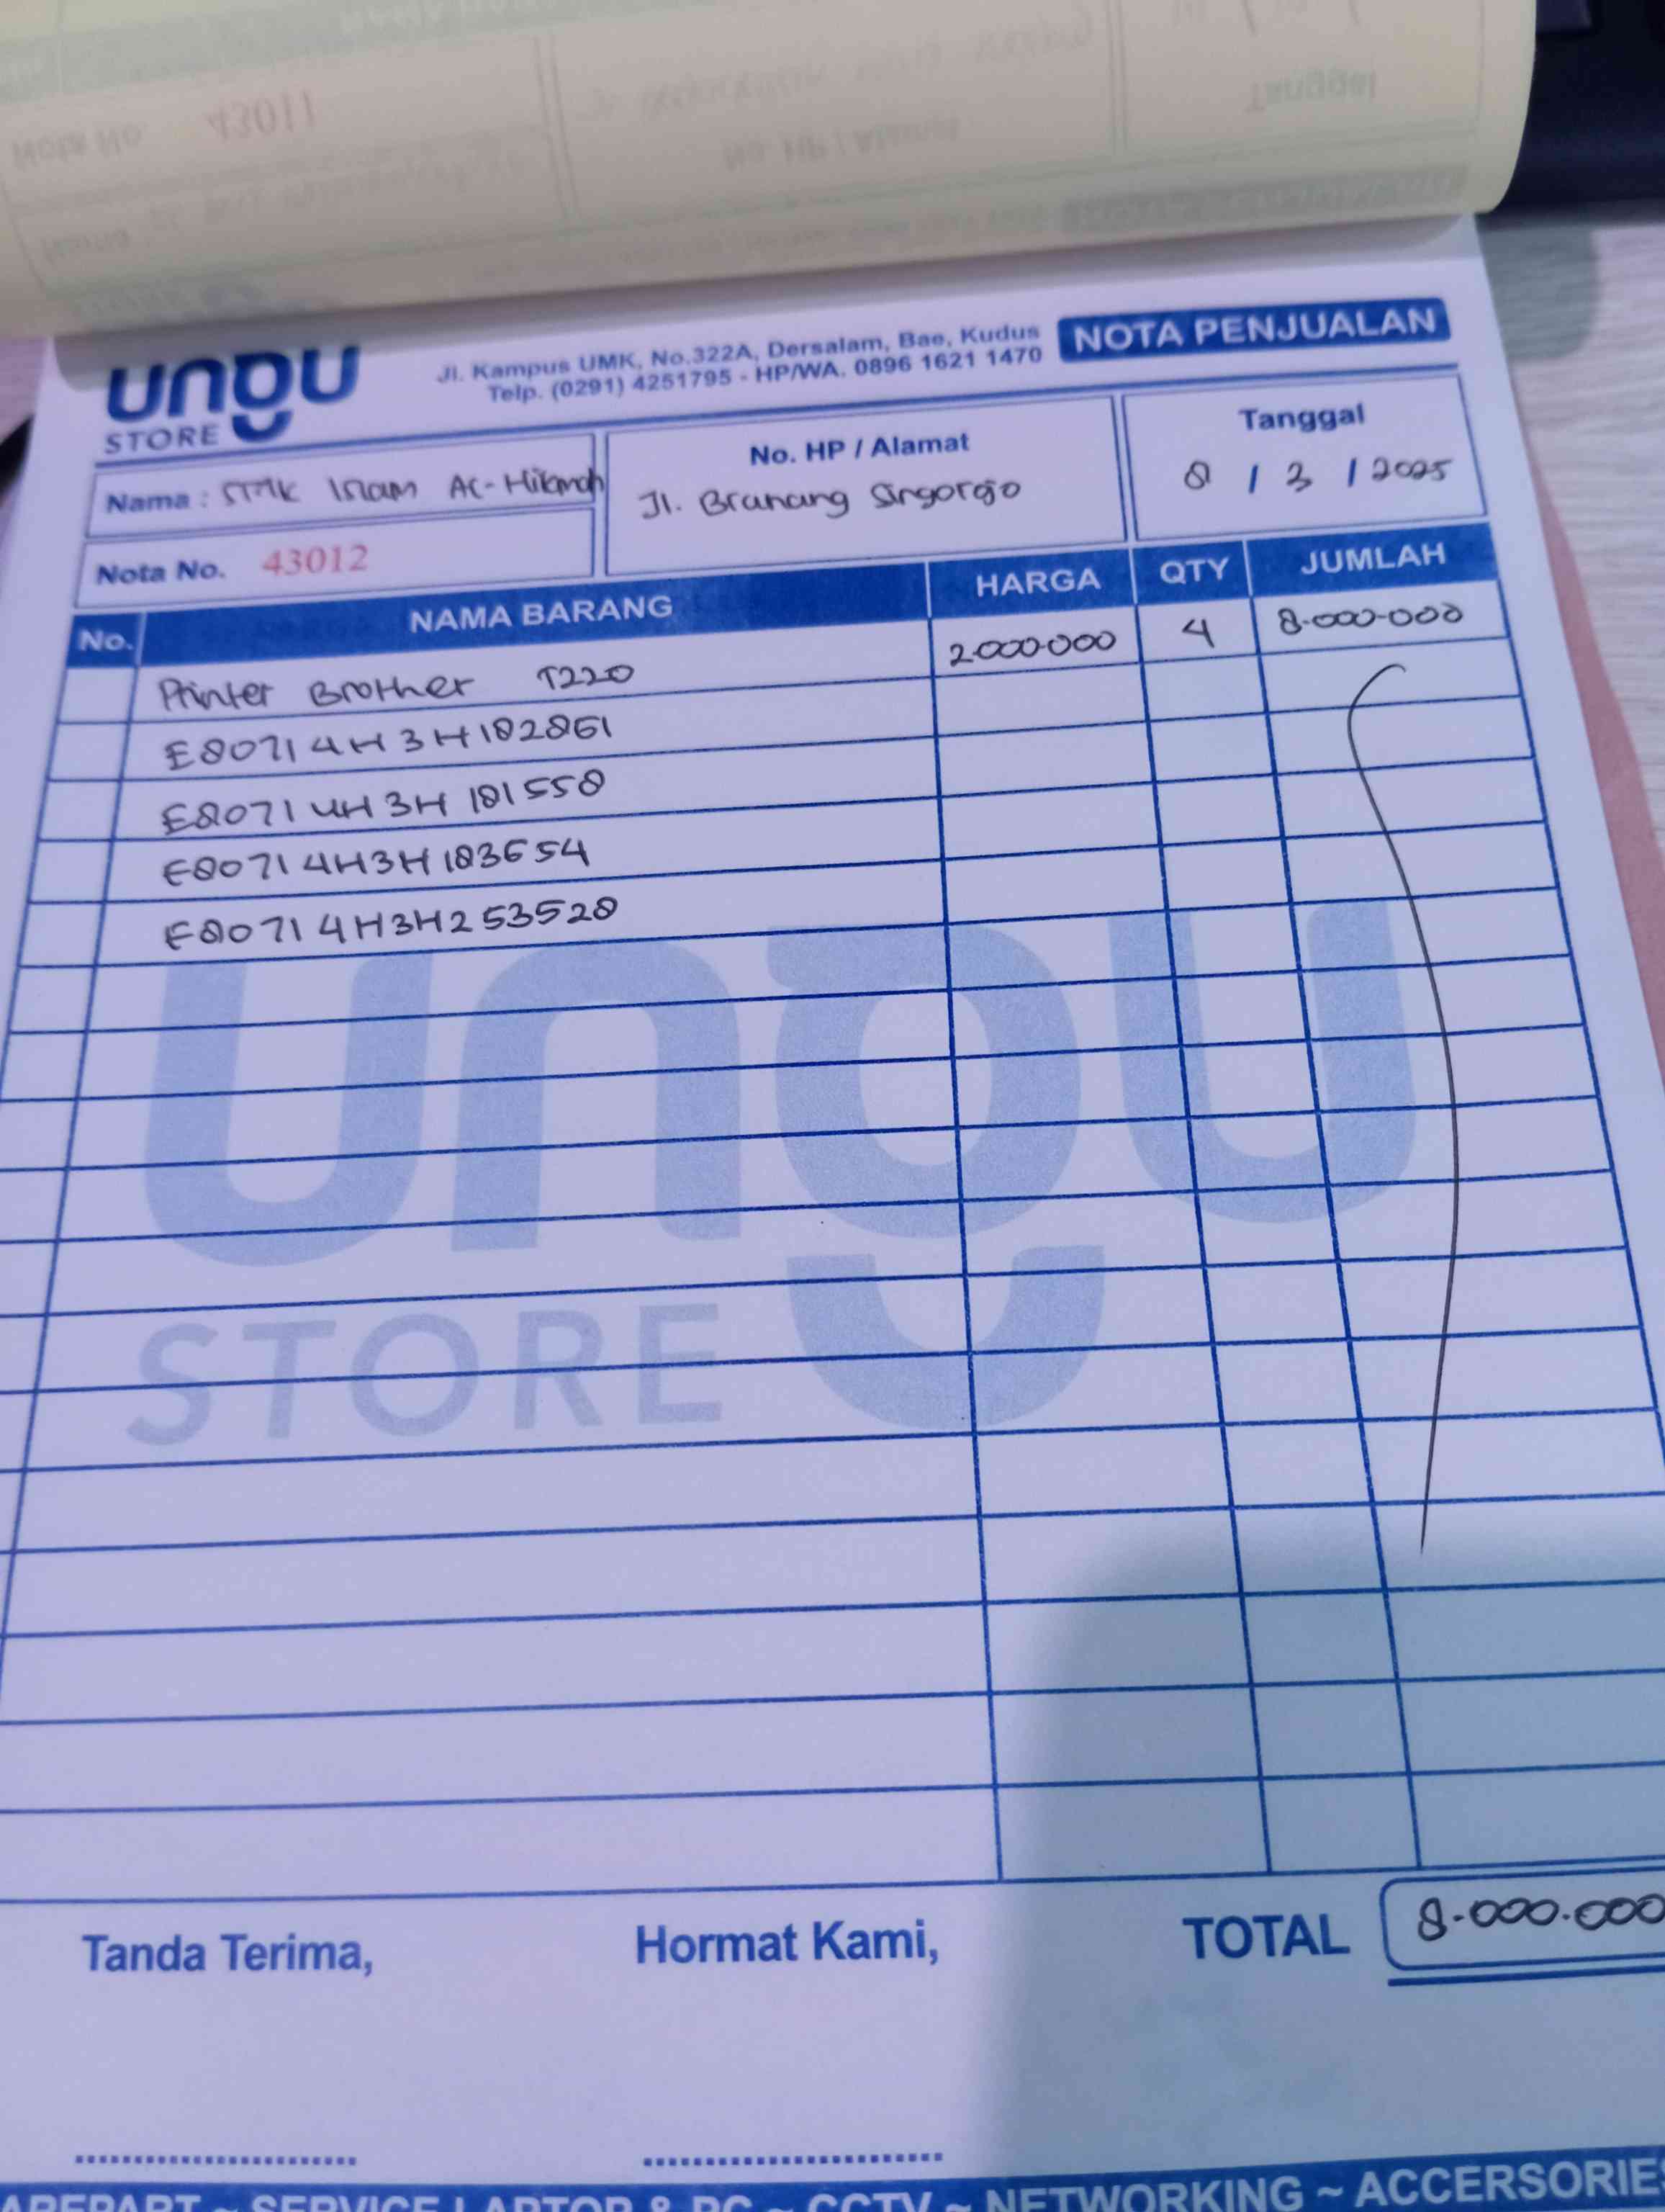 Nota No. 43011
No. HP / Alamat
Tanggal
Nama
ungu
STORE
Jl. Kampus UMK, No.322A, Dersalam, Bae, Kudus
Telp. (0291) 4251795 - HP/WA. 0896 1621 1470
NOTA PENJUALAN
Nama : SMK Islam Al-Hikmah
No. HP / Alamat
Jl. Branang Singorojo
Tanggal
8 / 3 / 2025
Nota No. 43012
No. NAMA BARANG HARGA QTY JUMLAH
Printer Brother T220 2.000.000 4 8.000.000
E80714H3H182861
E80714H3H181558
E80714H3H183654
E80714H3H253528
ungu
STORE
Tanda Terima, Hormat Kami, TOTAL 8.000.000
AREPART ~ SERVICE LAPTOP & PC ~ CCTV ~ NETWORKING ~ ACCERSORIES